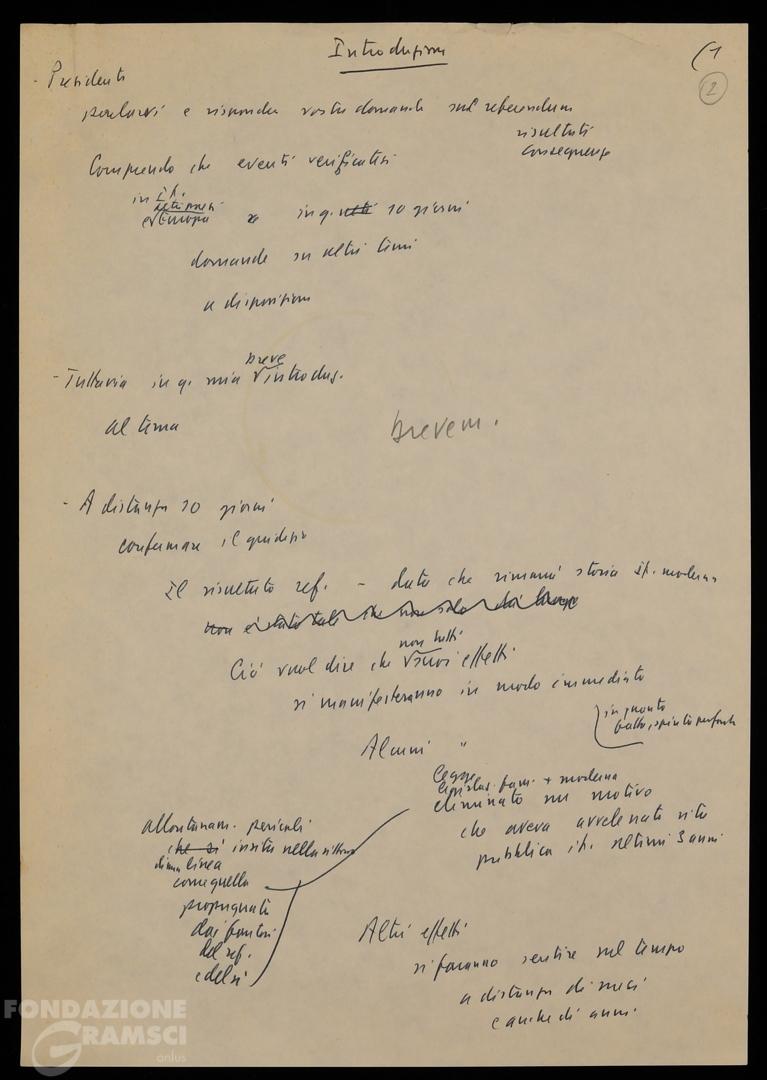 Introduzione
(1
2
- Presidente
parlarvi e rispondere vostre domande sul referendum
risultati
conseguenze
Comprendo che eventi verificatisi
in It.
e Europa in q. 10 giorni
domande su altri temi
a disposizione
breve
- Tuttavia in q. mia introduz.
al tema
brevem.
- A distanza 10 giorni
confermare il giudizio
Il risultato ref. - data che rimarrà storia it. moderna
non
non tutti
Ciò vuol dire che suoi effetti
si manifesteranno in modo immediato
in quanto
Alcuni "
Legge
legislaz. fam. + moderna
eliminato un motivo
che aveva avvelenato vita
pubblica it. ultimi 3 anni
allontanam. pericoli
che si insita nella vittoria
di una linea
come quella
propugnata
dai fautori
del ref.
e del sì
Altri effetti
si faranno sentire nel tempo
a distanza di mesi
e anche di anni.
FONDAZIONE
GRAMSCI
onlus